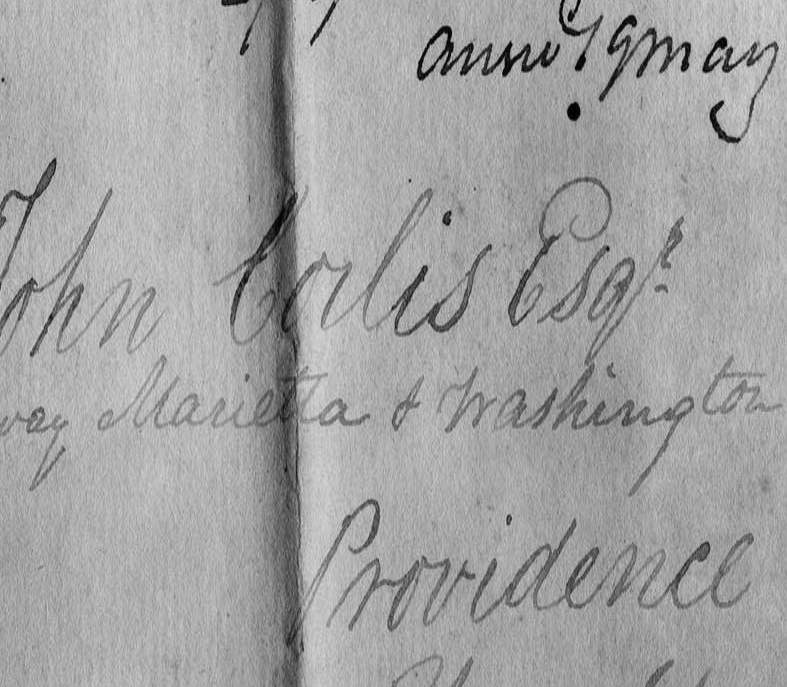 answd 19 may
John Corlis Esqr.
way Marietta & Washington
Providence